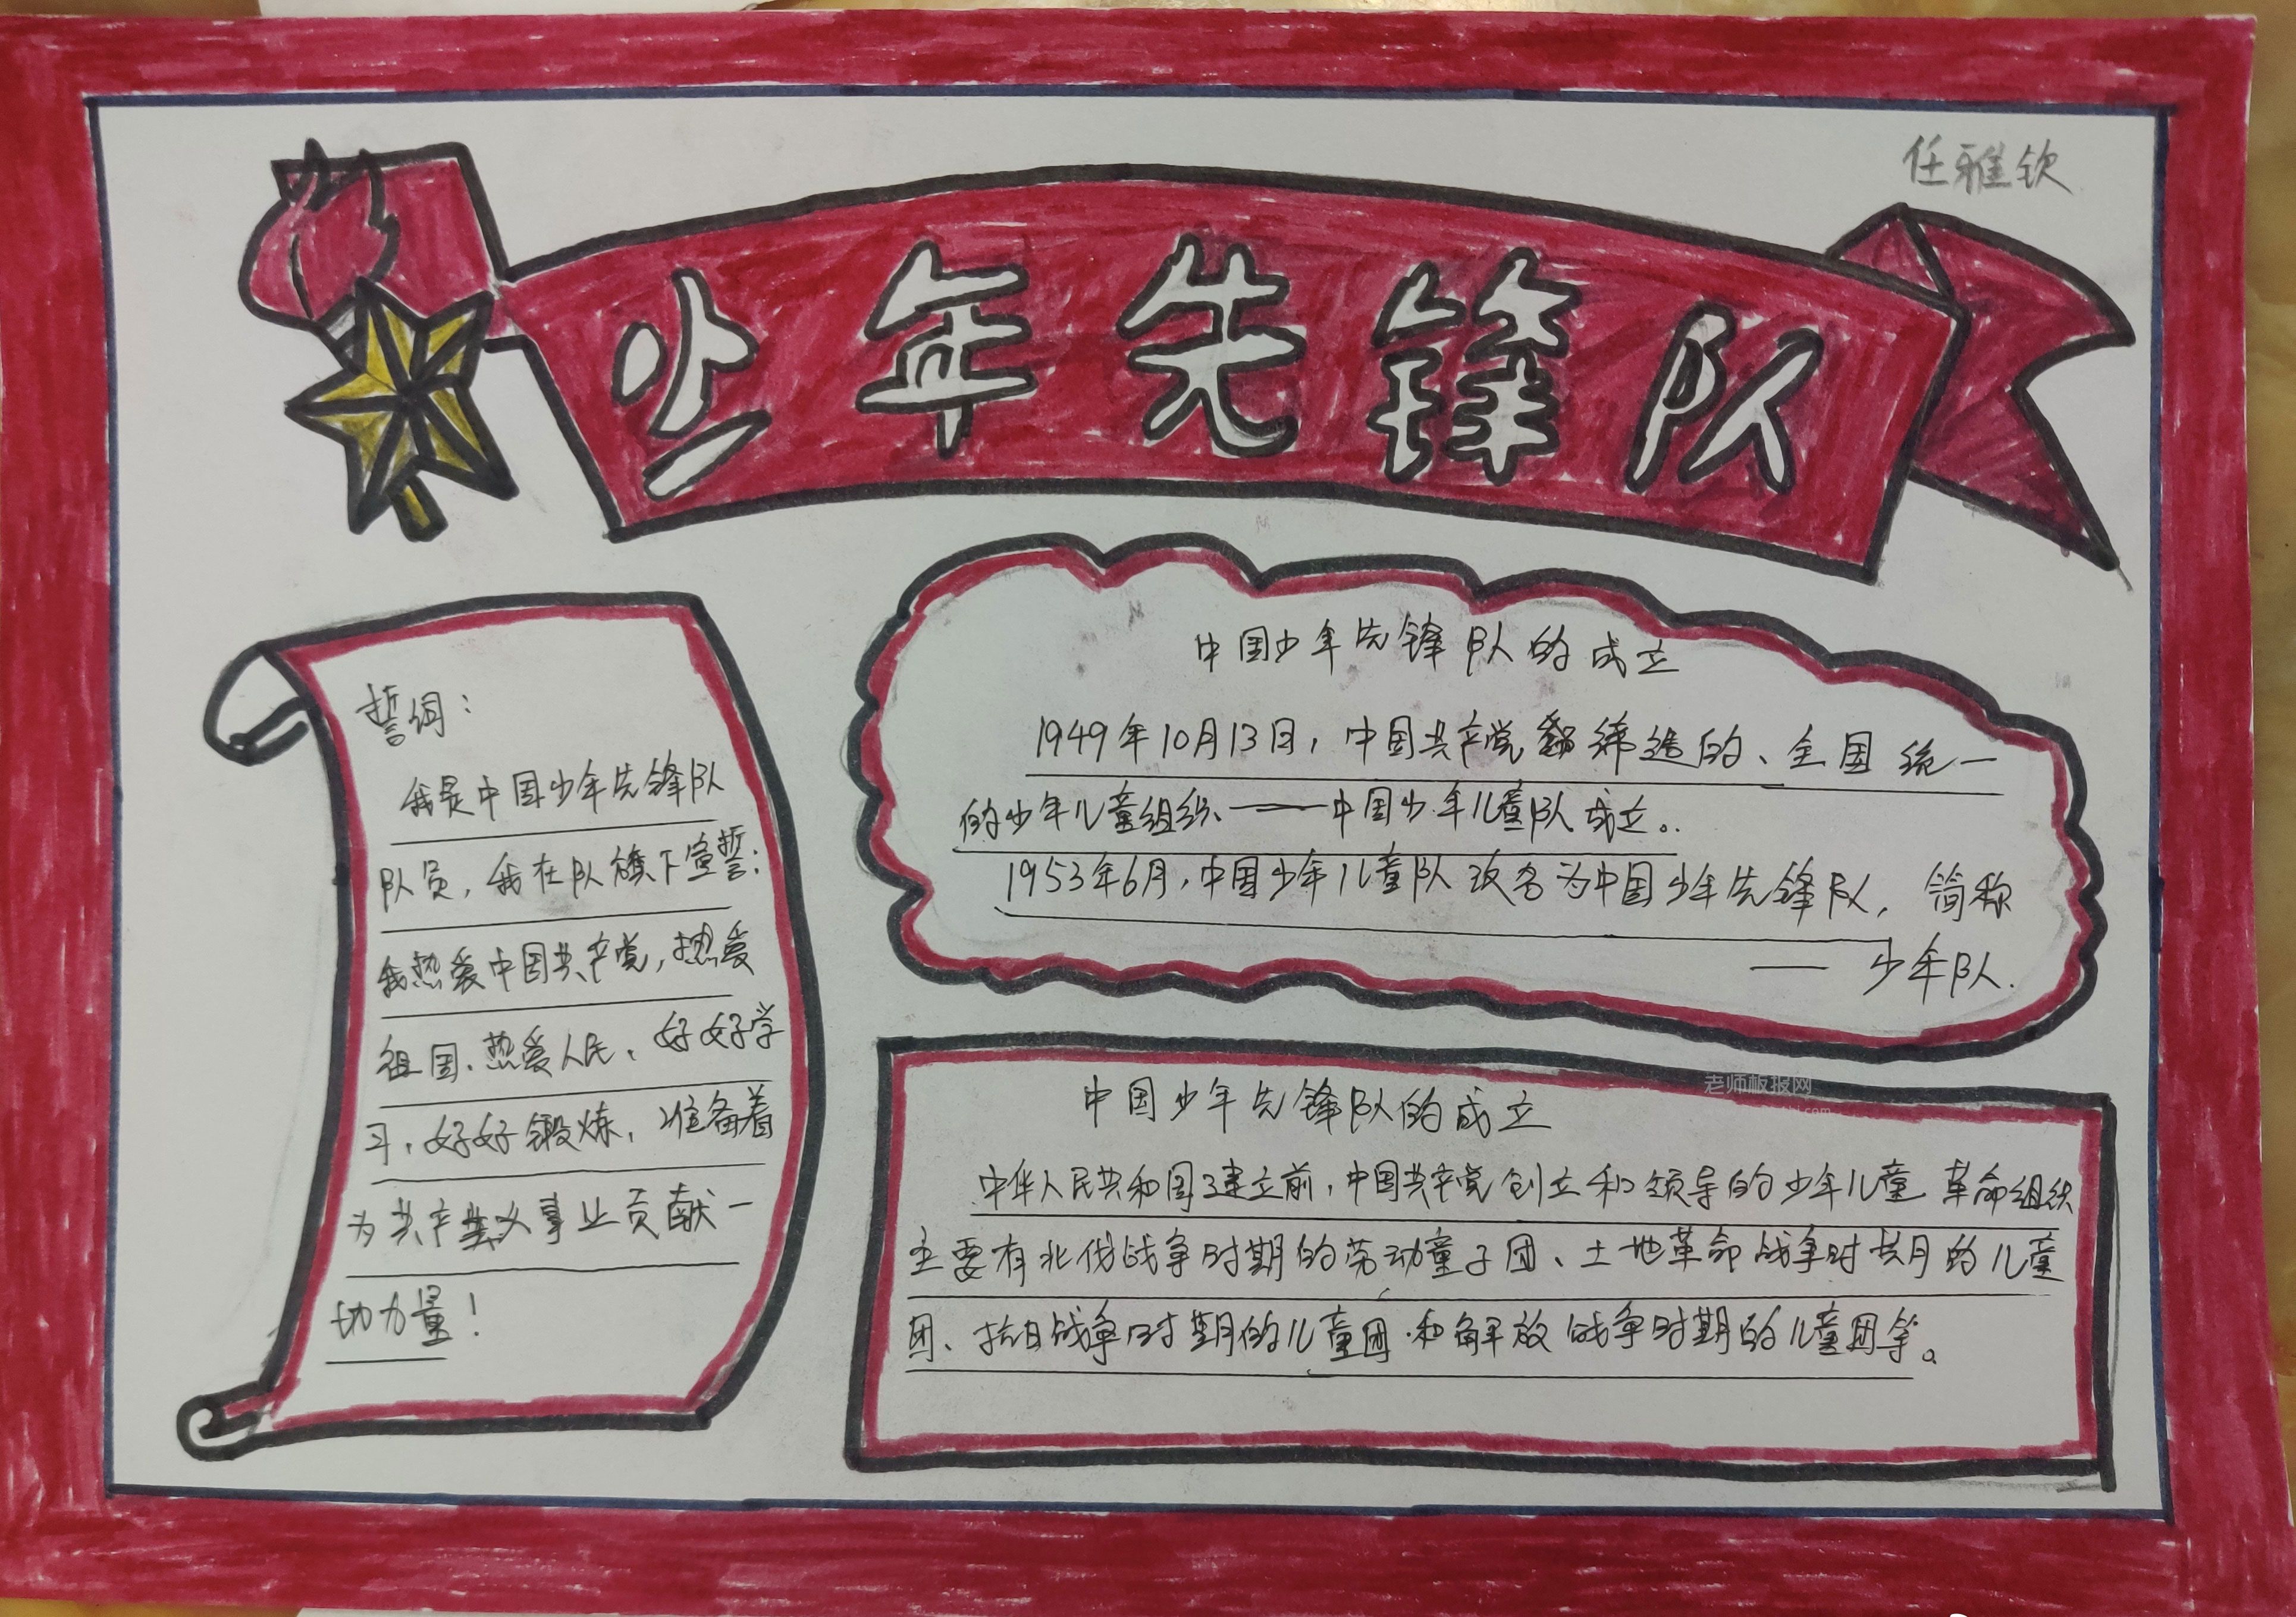 任雅钦
少年先锋队
誓词：
我是中国少年先锋队
队员，我在队旗下宣誓：
我热爱中国共产党，热爱
祖国、热爱人民，好好学
习，好好锻炼，准备着
为共产主义事业贡献一
切力量！
中国少年先锋队的成立
1949年10月13日，中国共产党缔造的、全国统一
的少年儿童组织——中国少年儿童队成立。
1953年6月，中国少年儿童队改名为中国少年先锋队，简称
—少年队.
老师板报网
中国少年先锋队的成立
中华人民共和国建立前，中国共产党创立和领导的少年儿童革命组织
主要有北伐战争时期的劳动童子团、土地革命战争时期的儿童
团、抗日战争时期的儿童团、和解放战争时期的儿童团等。